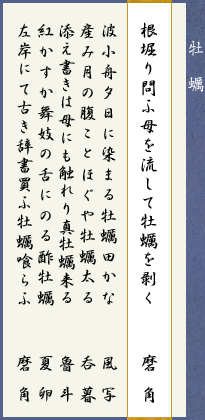 牡蠣
根堀り問ふ母を流して牡蠣を剥く 磨角
波小舟夕日に染まる牡蠣田かな 風写
産み月の腹ことほぐや牡蠣太る 呑暮
添え書きは母にも触れり真牡蠣来る 魯斗
紅かすか舞妓の舌にのる酢牡蠣 夏卵
左岸にて古き辞書買ふ牡蠣喰らふ 磨角